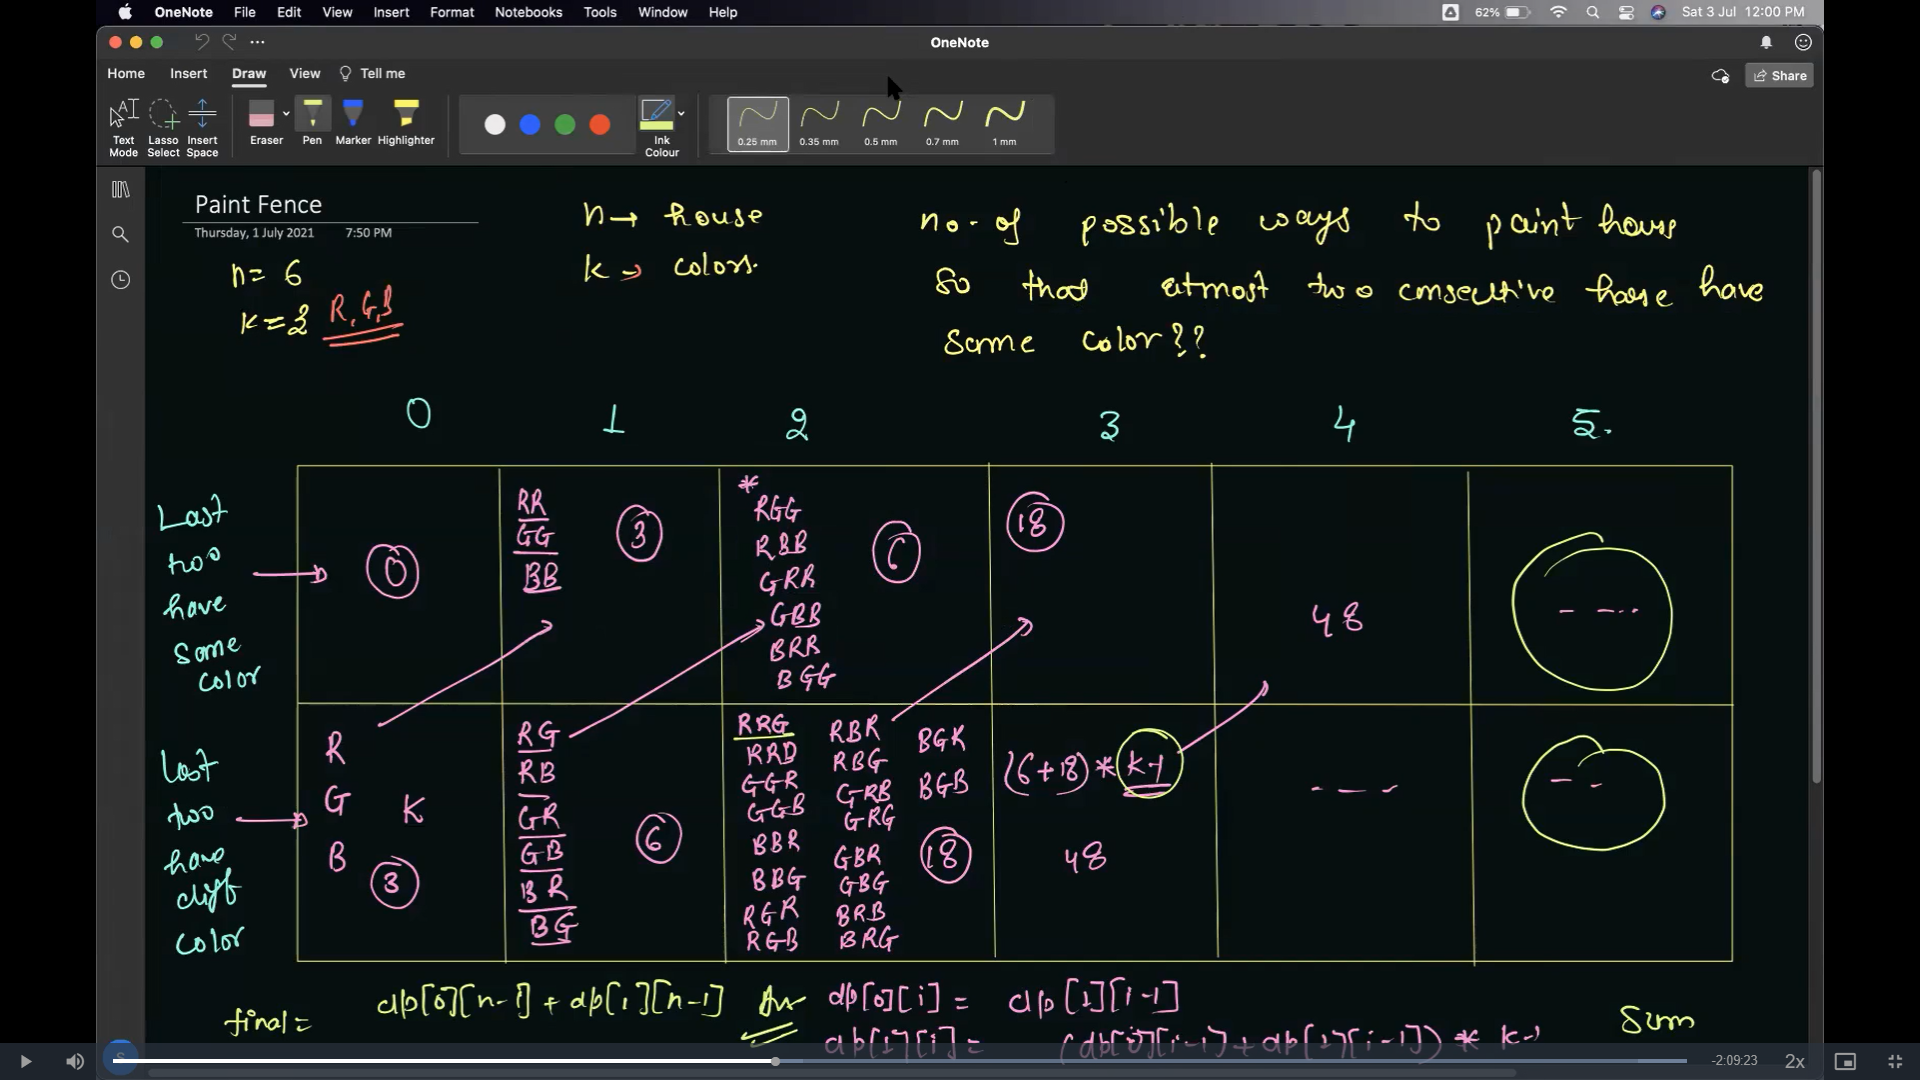 OneNote File Edit View Insert Format Notebooks Tools Window Help 62% Sat 3 Jul 12:00 PM
OneNote
Home Insert Draw View Tell me Share
Text Mode Lasso Select Insert Space Eraser Pen Marker Highlighter Ink Colour 0.25 mm 0.35 mm 0.5 mm 0.7 mm 1 mm
Paint Fence
Thursday, 1 July 2021 7:50 PM
n → house
k → colors.
no. of possible ways to paint house
So that atmost two consecutive house have
same color??
n= 6
k=3 R, G, B
0 1 2 3 4 5.
Last
two
have
same
color
0
RR
GG
BB
3
*
RGG
RBB
GRR
GBB
BRR
BGG
6
18
48
- - - . .
Last
two
have
diff
color
R
G
B
K
3
RG
RB
GR
GB
BR
BG
6
RRG
RRB
GGR
GGB
BBR
BBG
RGR
RGB
RBR
RBG
GRB
GRG
GBR
GBG
BRB
BRG
BGR
BGB
18
(6+18) * k-1
48
- - -
- -
final = dp[0][n-1] + dp[1][n-1] Ans
dp[0][i] = dp[1][i-1]
dp[1][i] = (dp[0][i-1] + dp[1][i-1]) * k-1
Sum
-2:09:23 2x